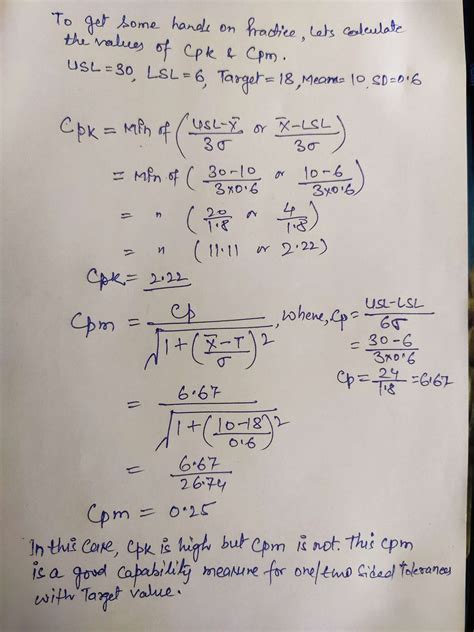 To get some hands on Practice, Lets calculate
the values of Cpk & Cpm.
USL=30, LSL=6, Target=18, Mean=10, SD=0.6
Cpk = Min of (USL-X̄/3σ or X̄-LSL/3σ)
= Min of (30-10/3×0.6 or 10-6/3×0.6)
= " (20/1.8 or 4/1.8)
= " (11.11 or 2.22)
Cpk = 2.22
Cpm = Cp/√1+(X̄-T/σ)², where, Cp = USL-LSL/6σ
= 30-6/3×0.6
Cp = 24/1.8 = 6.67
= 6.67/√1+(10-18/0.6)²
= 6.67/26.74
Cpm = 0.25
In this Case, Cpk is high but Cpm is not. This Cpm
is a good capability measure for one/two Sided Tolerances
with Target value.